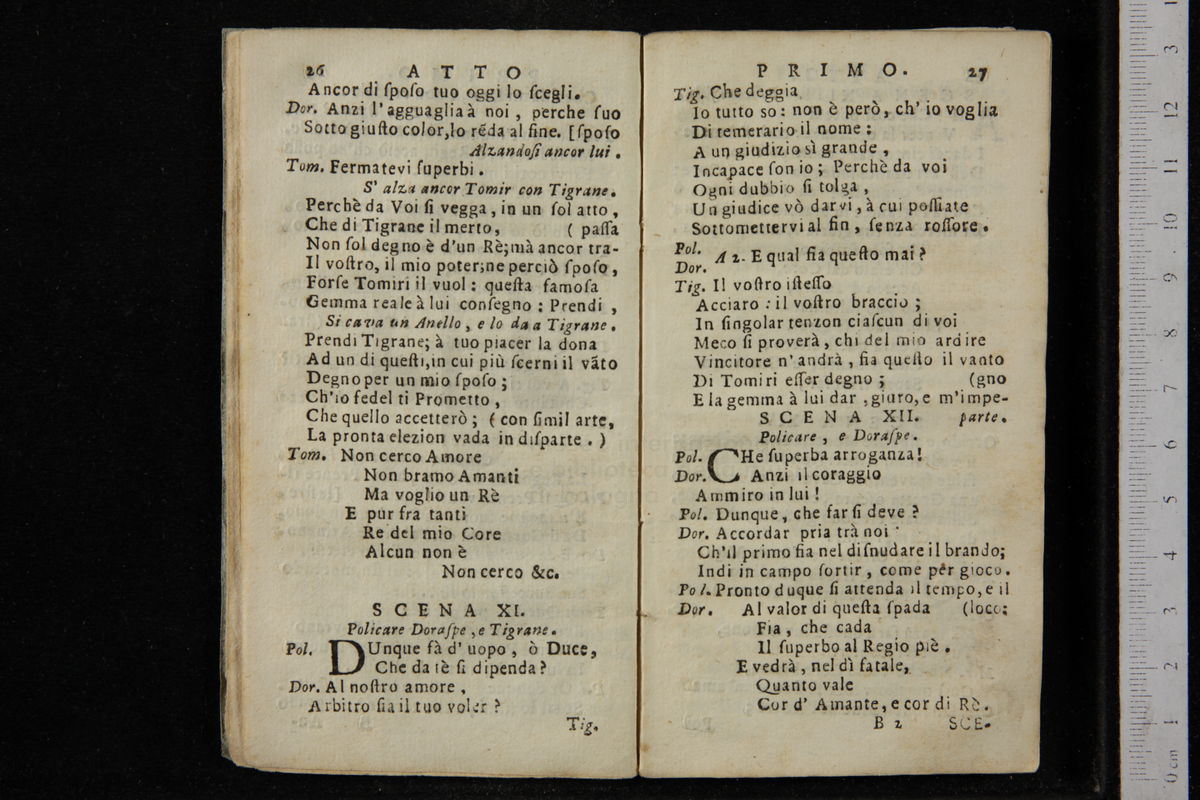 26 ATTO
Ancor di ſpoſo tuo oggi lo ſcegli.
Dor. Anzi l'agguaglia à noi, perche ſuo
Sotto giuſto color, lo rẽda al fine. [ſpoſo
Alzandoſi ancor lui.
Tom. Fermatevi ſuperbi.
S' alza ancor Tomir con Tigrane.
Perchè da Voi ſi vegga, in un ſol atto,
Che di Tigrane il merto, (paſſa
Non ſol degno è d'un Rè; mà ancor tra-
Il voſtro, il mio poter; ne perciò ſpoſo,
Forſe Tomiri il vuol: queſta famoſa
Gemma reale à lui conſegno: Prendi,
Si cava un Anello, e lo da a Tigrane.
Prendi Tigrane; à tuo piacer la dona
Ad un di queſti, in cui più ſcerni il vãto
Degno per un mio ſpoſo;
Ch'io fedel ti Prometto,
Che quello accetterò; (con ſimil arte,
La pronta elezion vada in diſparte.)
Tom. Non cerco Amore
Non bramo Amanti
Ma voglio un Rè
E pur fra tanti
Re del mio Core
Alcun non è
Non cerco &c.
SCENA XI.
Policare Doraſpe, e Tigrane.
Pol. DUnque fà d'uopo, ò Duce,
Che da tè ſi dipenda?
Dor. Al noſtro amore,
Arbitro ſia il tuo voler?
Tig.
PRIMO. 27
Tig. Che deggia
Io tutto so: non è però, ch' io voglia
Di temerario il nome:
A un giudizio sì grande,
Incapace ſon io; Perchè da voi
Ogni dubbio ſi tolga,
Un giudice vò darvi, à cui poſſiate
Sottomettervi al fin, ſenza roſſore.
Pol.
Dor. A 2. E qual ſia queſto mai?
Tig. Il voſtro iſteſſo
Acciaro: il voſtro braccio;
In ſingolar tenzon ciaſcun di voi
Meco ſi proverà, chi del mio ardire
Vincitore n'andrà, ſia queſto il vanto
Di Tomiri eſſer degno; (gno
E la gemma à lui dar, giuro, e m'impe-
SCENA XII. parte.
Policare, e Doraſpe.
Pol. CHe ſuperba arroganza!
Dor. Anzi il coraggio
Ammiro in lui!
Pol. Dunque, che far ſi deve?
Dor. Accordar pria trà noi
Ch'il primo ſia nel diſnudare il brando;
Indi in campo ſortir, come pèr gioco.
Pol. Pronto duque ſi attenda il tempo, e il
Dor. Al valor di queſta ſpada (loco;
Fia, che cada
Il ſuperbo al Regio piè.
E vedrà, nel dì fatale,
Quanto vale
Cor d' Amante, e cor di Rè.
B 2 SCE.